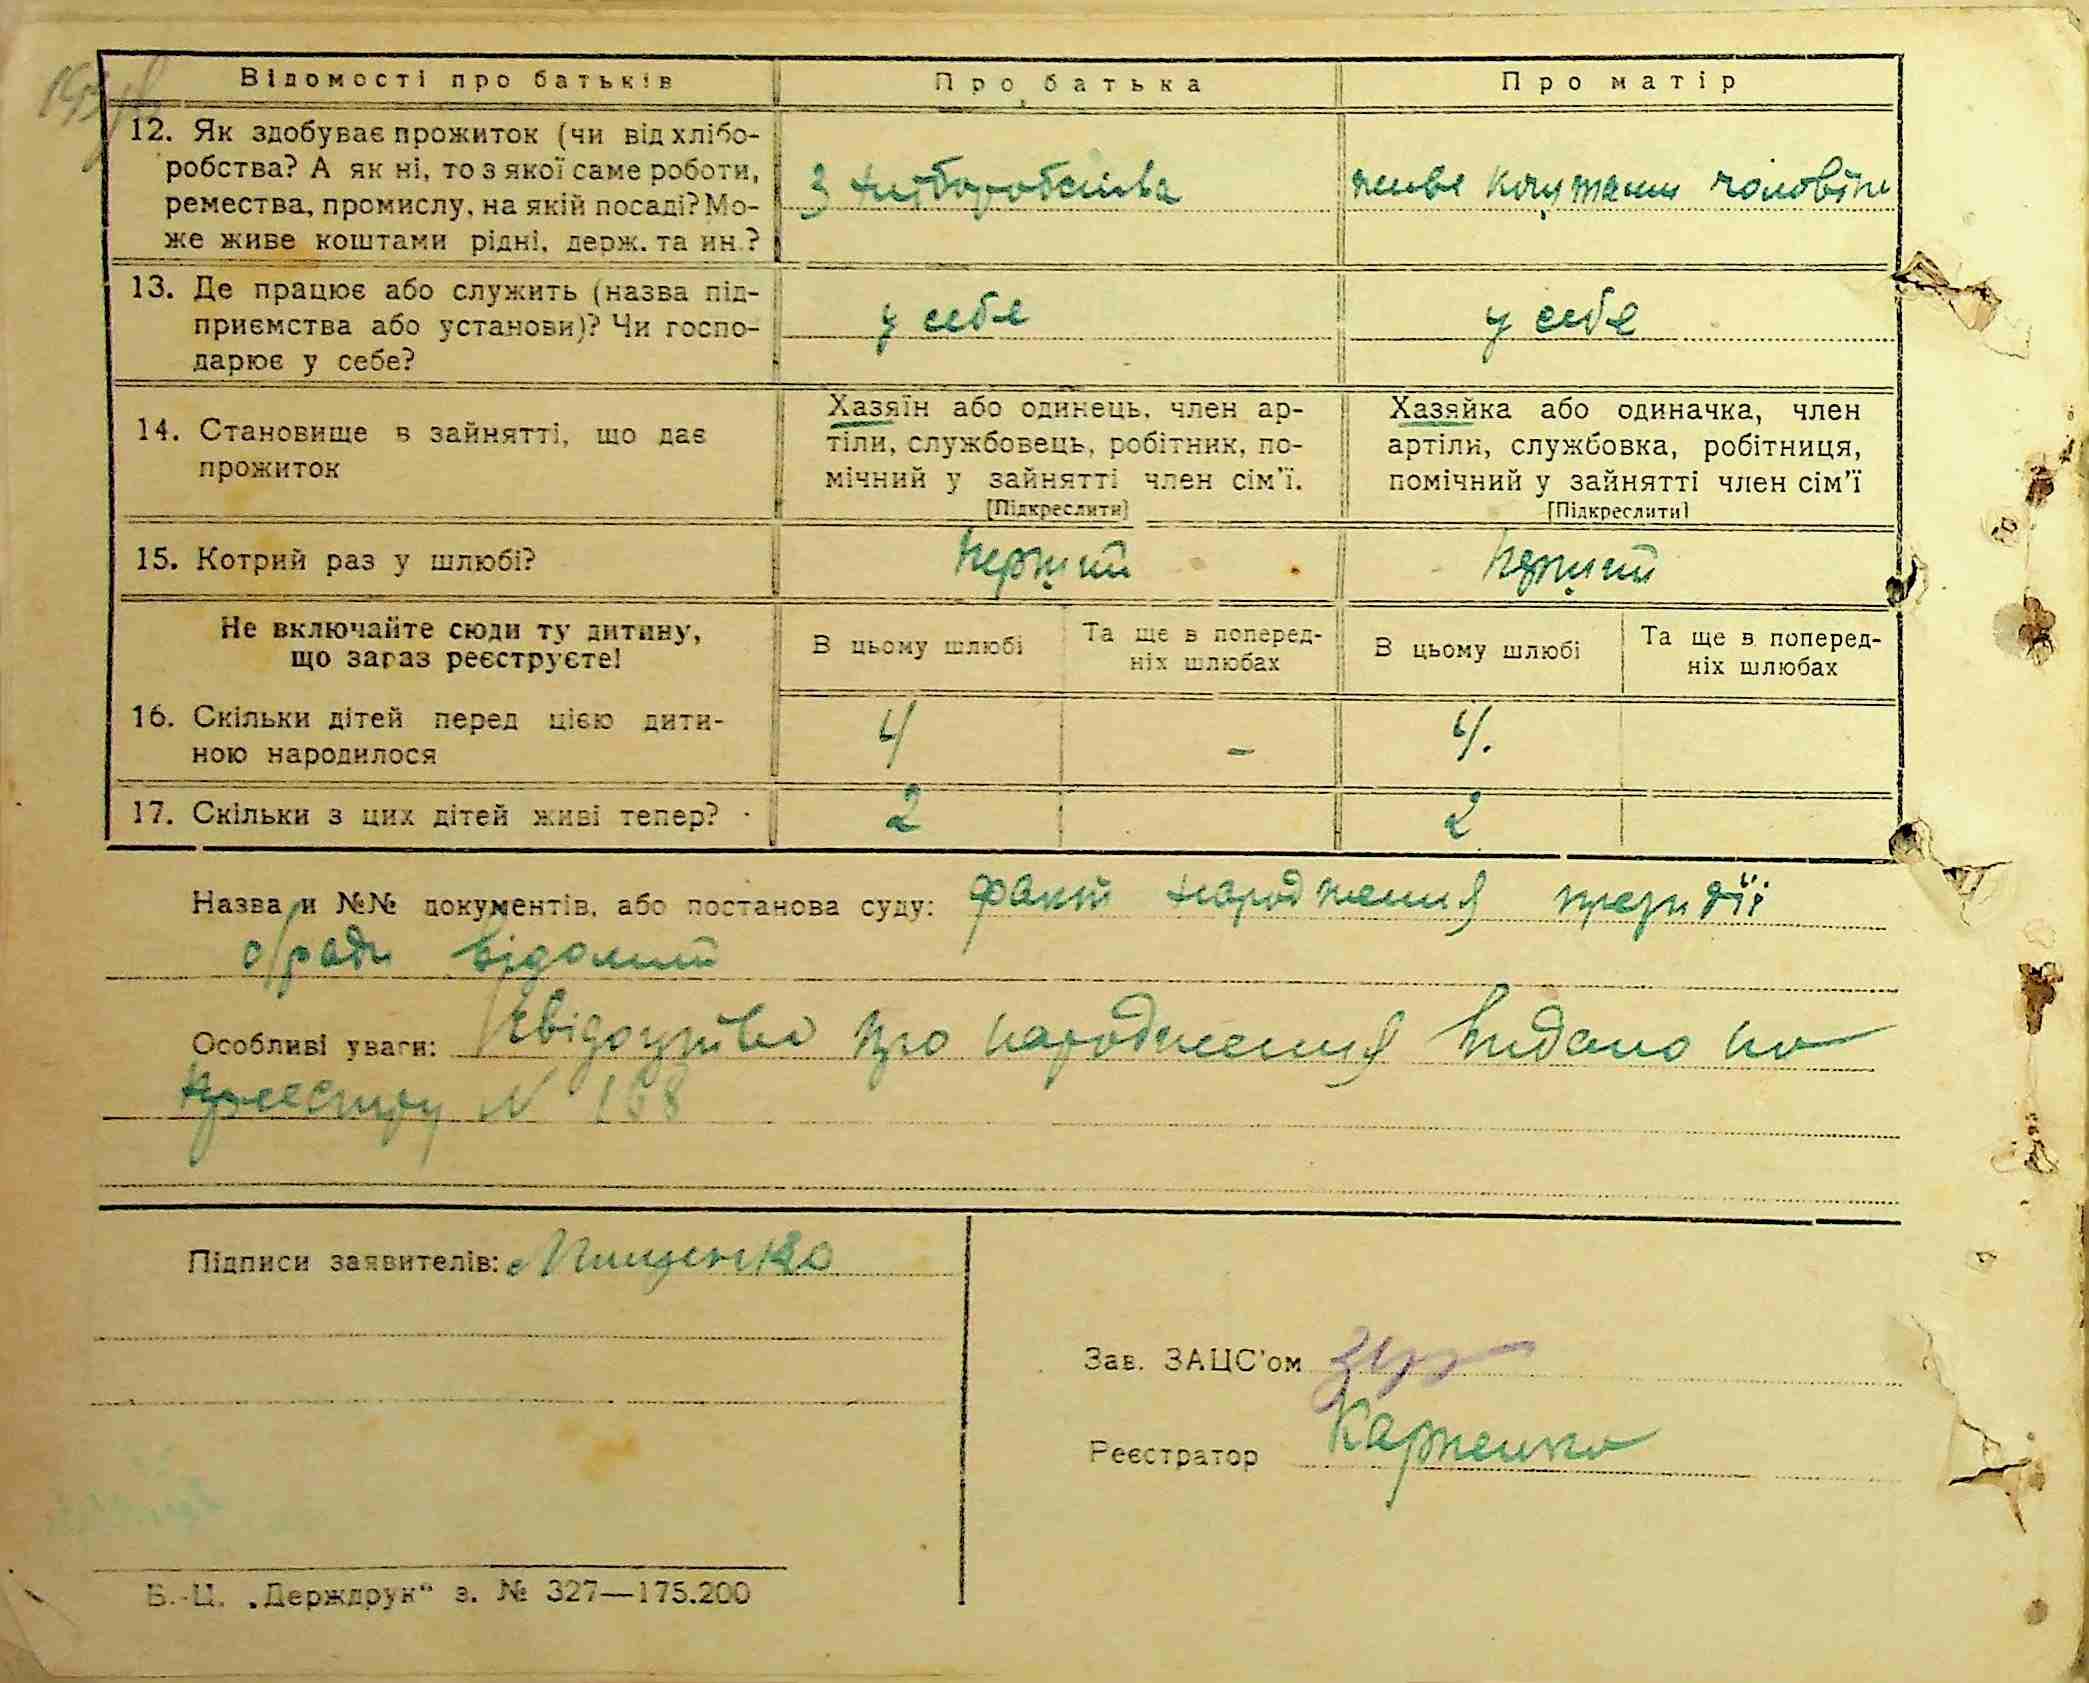 Відомості про батьків
Про батька
Про матір
12. Як здобуває прожиток (чи від хлібо-
робства? А як ні, то з якої саме роботи,
ремества, промислу, на якій посаді? Мо-
же живе коштами рідні, держ. та ин.?
З хліборобства
живе коштами чоловіка
13. Де працює або служить (назва під-
приємства або установи)? Чи госпо-
дарює у себе?
у себе
у себе
14. Становище в зайнятті, що дає
прожиток
Хазяїн або одинець, член ар-
тіли, службовець, робітник, по-
мічний у зайнятті член сім'ї.
[Підкреслити]
Хазяйка або одиначка, член
артіли, службовка, робітниця,
помічний у зайнятті член сім'ї
[Підкреслити]
15. Котрий раз у шлюбі?
перший
перший
Не включайте сюди ту дитину,
що зараз реєструєте!
В цьому шлюбі
Та ще в поперед-
ніх шлюбах
В цьому шлюбі
Та ще в поперед-
ніх шлюбах
16. Скільки дітей перед цією дити-
ною народилося
4
-
4.
17. Скільки з цих дітей живі тепер?
2
2
Назва и №№ документів, або постанова суду: факт народження президії
с/ради відомий
Особливі уваги: Свідоцтво про народження видано по
реєстру N 168
Підписи заявителів: Пищенко
Зав. ЗАЦС'ом
Реєстратор Карпенко
Б.-Ц. „Держдрук“ з. № 327—175.200